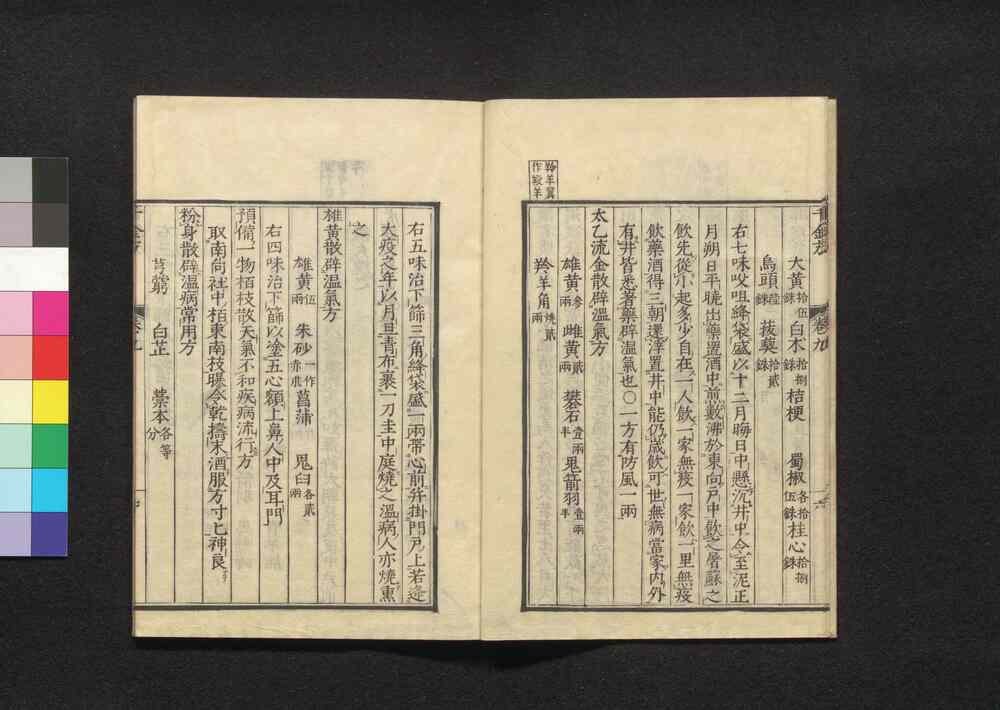 大黃拾伍銖 白朮拾捌銖 桔梗 蜀椒各拾伍銖 桂心拾捌銖
烏頭陸銖 菝葜拾貳銖
右七味㕮咀絳袋盛以十二月晦日中懸沉井中令至泥正
月朔日平曉出藥置酒中煎數沸於東向戶中飲之屠蘇之
飲先從小起多少自在一人飲一家無疫一家飲一里無疫
飲藥酒得三朝還滓置井中能仍歲飲可世無病當家內外
有井皆悉著藥辟溫氣也〇一方有防風一兩
太乙流金散辟溫氣方
雄黃參兩 雌黃貳兩 礬石壹兩半 鬼箭羽壹兩半
羚羊角燒貳兩
羚羊翼
作羖羊
右五味治下篩三角絳袋盛一兩帶心前幷掛門戶上若逢
大疫之年以月旦青布裹一刀圭中庭燒之溫病人亦燒熏
之
雄黃散辟溫氣方
雄黃伍兩 朱砂一作赤朮 菖蒲 鬼臼各貳兩
右四味治下篩以塗五心額上鼻人中及耳門
預備一物栢枝散天氣不和疾病流行方
取南向社中栢東南枝曝令乾擣末酒服方寸匕神良
粉身散辟溫病常用方
芎藭 白芷 藁本各等分